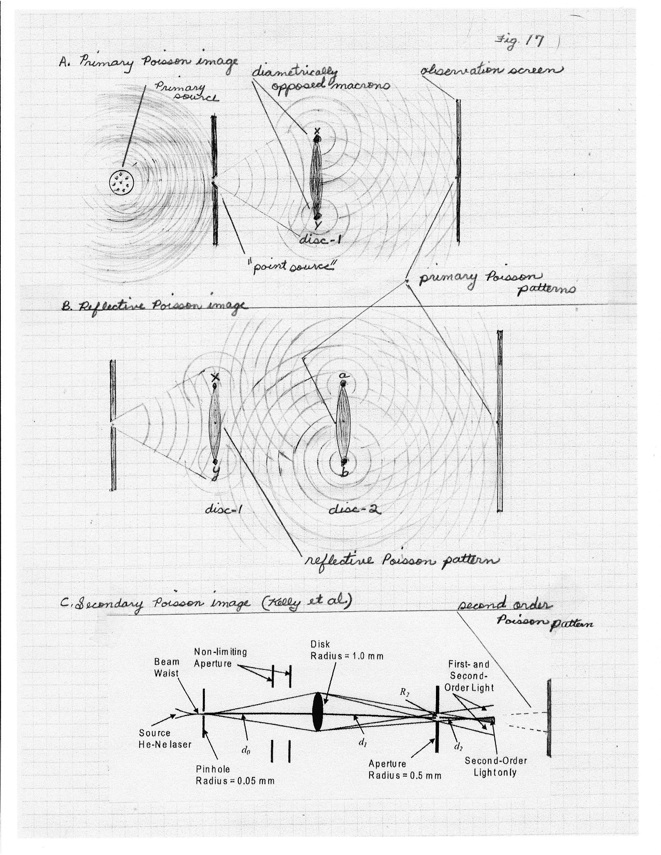 Fig. 17
A. Primary Poisson image
Primary
source
diametrically
opposed macrons
observation screen
x
y
disc-1
"point source"
primary Poisson
patterns
B. Reflective Poisson image
x
a
y
b
disc-1
disc-2
reflective Poisson pattern
C. Secondary Poisson image (Kelly et al)
second order
Poisson pattern
Beam
Waist
Non-limiting
Aperture
Disk
Radius = 1.0 mm
R2
First- and
Second-
Order Light
Source
He-Ne laser
d0
d1
d2
Pinhole
Radius = 0.05 mm
Aperture
Radius = 0.5 mm
Second-Order
Light only